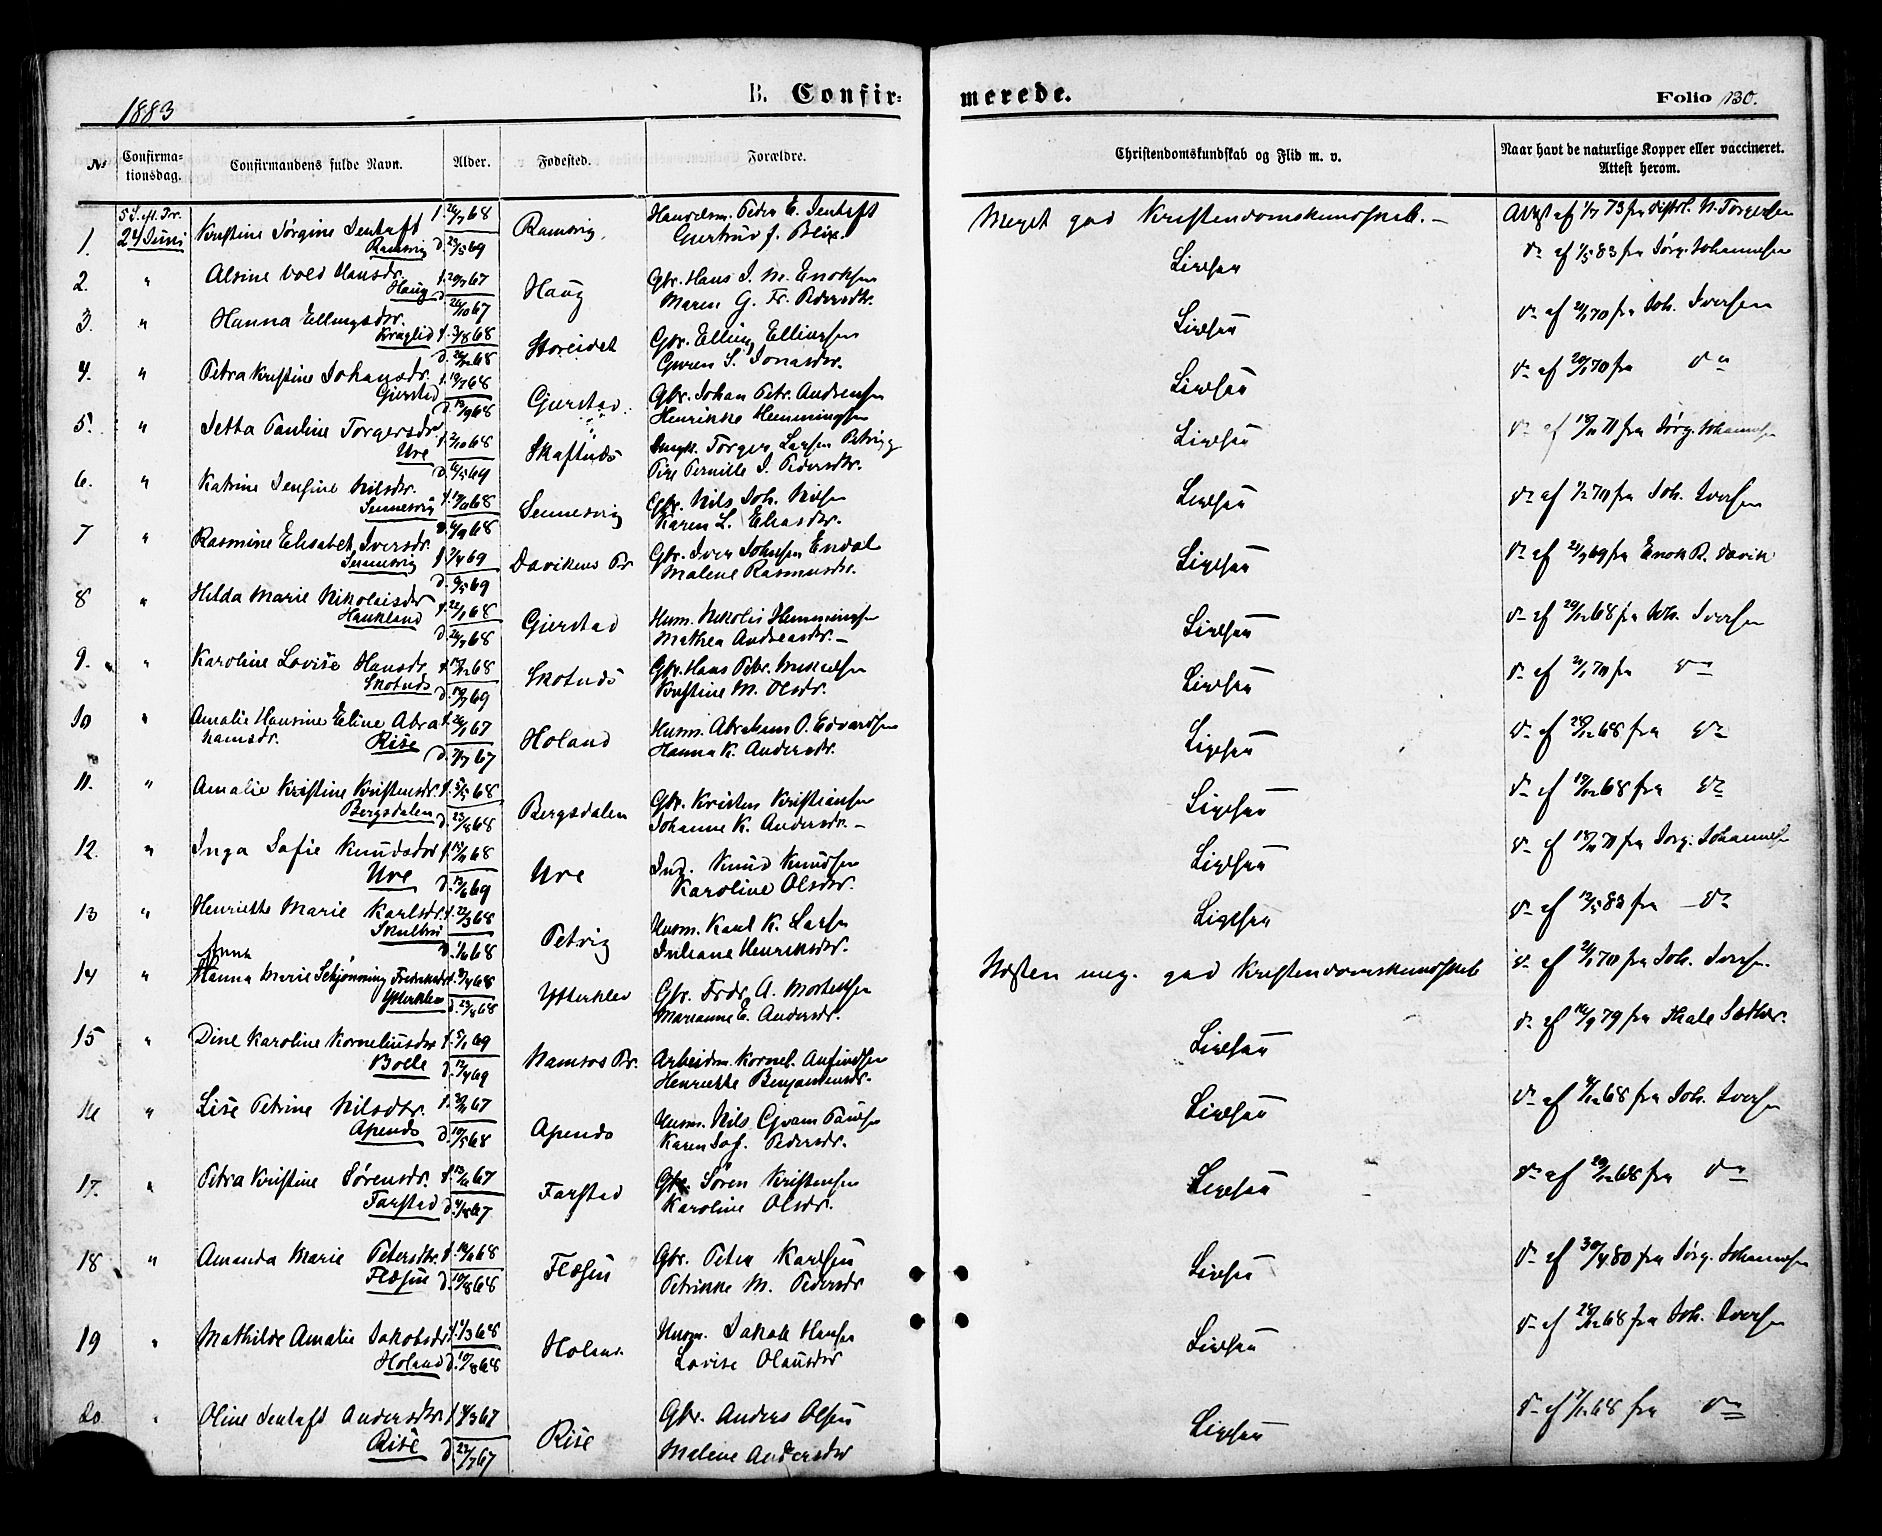 1883
B. Confir=
merede.
Folio 130.
No
Confirma-
tionsdag.
Confirmandens fulde Navn.
Alder.
Fødested.
Forældre.
Christendomskundskab og Flid m. v.
Naar havt de naturlige Kopper eller vaccineret.
Attest herom.
1.
24 Juni
Kristine Jørgine Jentoft
Ramsvig
f. 26/7 68
d. 23/5 69
Ramsvig
Peder E. Jentoft
Gjertrud J. Blix.
Meget god Kristendomskundskab.
Attst af 1/7 73 fra
2.
"
Alvine Vold Hansdr.
Haug
f. 20/7 67
d. 26/10 67
Haug
Gbr. Hans J. M. Enoksen
Maren G. Fr. Pedersdtr.
Ligesaa
dº af 1/5 83 fra Jørg. Johannesen
3.
"
Hanna Ellingsdr.
f. 3/8 68
Storeidet
Gbr. Elling Ellingsen
Guren S. Jonasdr.
Ligesaa
dº af fra Joh. Iversen
4.
"
Petra Kristine Johansdr.
Gjerstad
f. 19/7 68
d. 13/9 68
Gjerstad
Gbr. Johan Petr. Andreasen
Henrikke Hemmingsen
Ligesaa
dº af 20/1 70 fra dº
5.
"
Jetta Pauline Torgersdr
Ure
f. 2/10 68
d. 16/5 69
Skaftnes
Torger Larsen Petvig
Pernille J. Pedersdtr.
Ligesaa
dº af 18/11 71 fra Jørg. Johannesen
6.
"
Katrine Jensine Nilsdr.
Sennesvig
Sennesvig
Gbr. Nils Joh. Nilsen
Karen L. Eliasdr.
Ligesaa
dº af 1/2 70 fra Joh. Iversen
7
"
Rasmine Elisabet Iversdr.
Sennesvig
f. 7/4 69
d. 9/5 69
Davikens Pr
Gbr. Iver Johnsen Endal
Malene Rasmusdr.
Ligesaa
dº af 21/9 69 fra Enok R. Davik
8
"
Hilda Marie Nikolaisdr
Haukland
f. 22/1 68
d. 26/7 68
Gjerstad
Husm. Nikolai Hemmingsen
Mathea Andreasdr.
Ligesaa
dº af 29/12 68 fra Joh. Iversen
9.
"
Karoline Lovise Hansdr.
Skotnes
f. 19/12 68
d. 18/7 69
Skotnes
Gbr. Hans Petr. Mikalsen
Kristine M. Olsdr.
Ligesaa
dº af 21/1 70 fra dº
10
"
Amalie Hansine Eline Abra
hamsdr.
Rise
f. 26/1 67
d. 7/7 67
Holand
Husm. Abraham O. Edvardsen
Hanna K. Andersdr.
Ligesaa
dº af 28/12 68 fra dº
11.
"
Amalie Kristine Kristensdr.
Bergsdalen
f. 5/5 68
d. 23/8 68
Bergsdalen
Gbr. Kristen Kristiansen
Johanne K. Andersdr.
Ligesaa
dº af 19/12 68 fra dº
12.
"
Inga Sofie Knudsdtr
Ure
d. 13/6 69
Ure
Ind. Knud Knudsen
Karoline Olsdtr.
Ligesaa
dº af 18/11 71 fra Jørg. Johannesen
13
"
Henriette Marie Karlsdr.
f. 22/3 68
d. 1/6 68
Petvig
Husm. Karl K. Larsen
Juliane Henriksdr.
Ligesaa
dº af 13/5 83 fra dº
14
"
Anna
Hanna Marie Schjønning Fredriksdr
Ytterklev
f. 9/4 68
d. 23/8 68
Ytterklev
Gbr. Frdr. A. Mortensen
Marianne E. Andersdr.
Næsten meg. god Kristendomskundskab
dº af 21/1 70 fra Joh. Iversen.
15
"
Dine Karoline Korneliusdr
Bolle
f. 5/1 69
d. 12/4 69
Namsos Pr.
Arbeidsm. Kornel. Anfindsen
Henriette Benjaminsdr.
Ligesaa
dº af 16/9 79 fra
16
"
Lise Petrine Nilsdtr.
Apenes
d. 10/5 68
Apenes
Husm. Nils Paulsen
Karen Sof. Pedersdr.
Ligesaa
dº af 4/12 68 fra Joh. Iversen
17.
"
Petra Kristine Sørensdr.
Farstad
Farstad
Gbr. Søren Kristensen
Karoline Olsdr.
Ligesaa
dº af 29/12 68 fra dº
18
"
Amanda Marie Petersdtr.
Flæsen
d. 10/8 68
Flæsen
Gbr. Peter Karlsen
Petrikke M. Pedersdr
Ligesaa
dº af 30/4 80 fra Jørg. Johannesen
19
"
Mathilde Amalie Jakobsdr
Holand
d. 10/8 68
Holand
Husm. Jakob Hansen
Lovise Olausdtr
Ligesaa
dº af 28/12 68 fra Joh. Iversen
20
"
Oline Jentoft Andersdtr
Rise
f. 4/3 67
d. 22/7 67
Rise
Gbr. Anders Olsen
Malene Andersdtr
Ligesaa
dº af 7/12 68 fra dº